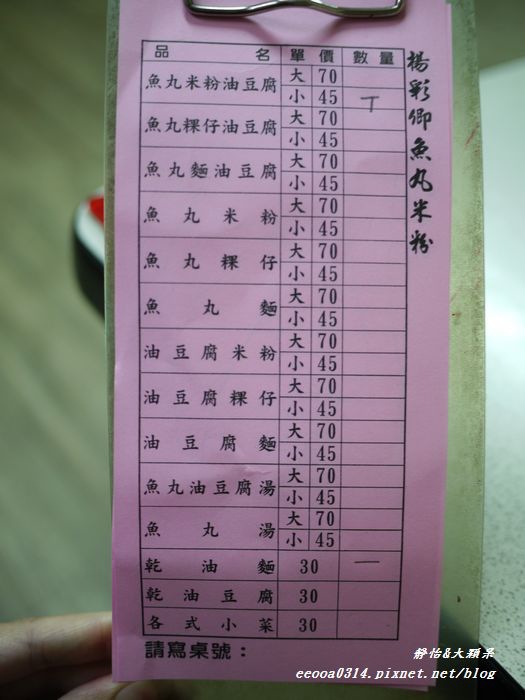 楊彩卿魚丸米粉
品名 單價 數量
魚丸米粉油豆腐 大 70
小 45 丅
魚丸粿仔油豆腐 大 70
小 45
魚丸麵油豆腐 大 70
小 45
魚丸米粉 大 70
小 45
魚丸粿仔 大 70
小 45
魚丸麵 大 70
小 45
油豆腐米粉 大 70
小 45
油豆腐粿仔 大 70
小 45
油豆腐麵 大 70
小 45
魚丸油豆腐湯 大 70
小 45
魚丸湯 大 70
小 45
乾油麵 30 一
乾油豆腐 30
各式小菜 30
請寫桌號：
靜怡&大顆呆
eeooa0314.pixnet.net/blog